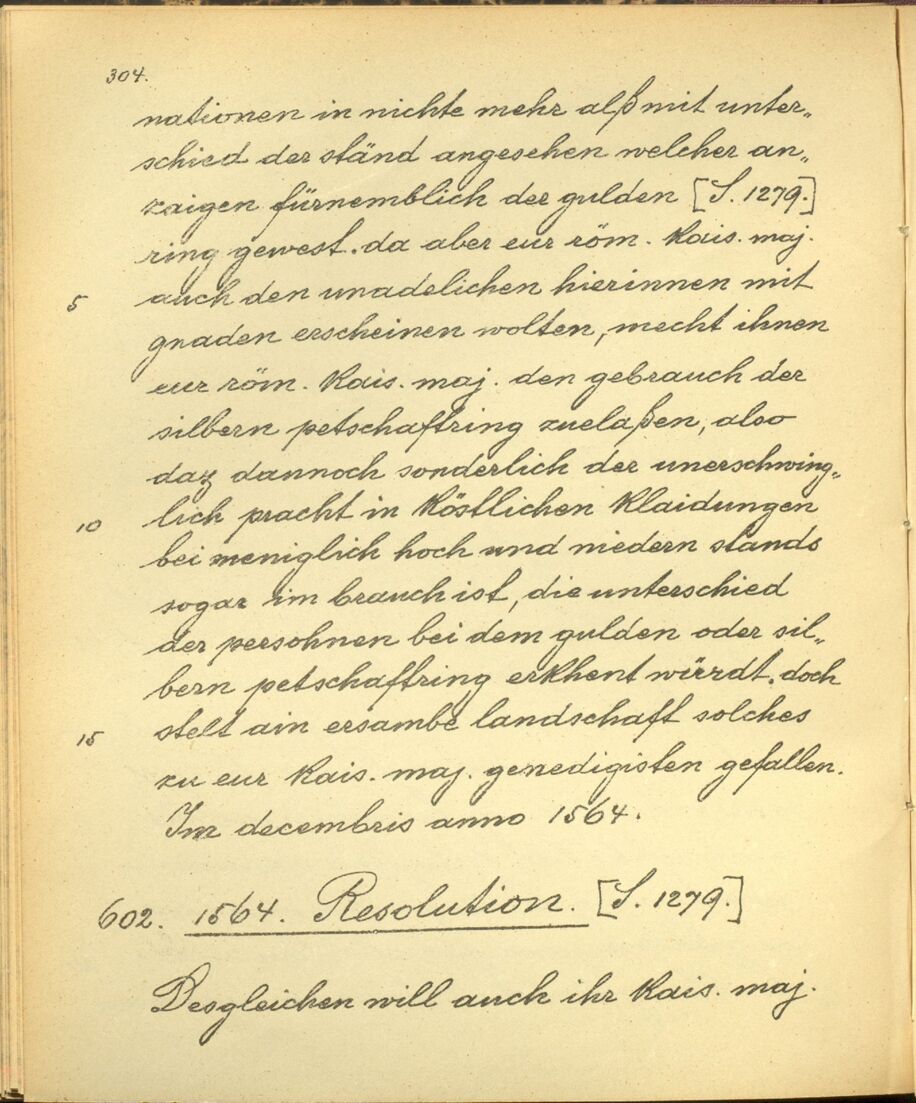 304.
nationen in nichte mehr alß mit unter„
schied der ständ angesehen welcher an„
zaigen fürnemblich der gulden [S. 1279.]
ring gewest. da aber eur röm. Kais. maj.
5 auch den unadelichen hierinnen mit
gnaden erscheinen wolten, mecht ihnen
eur röm. Kais. maj. den gebrauch der
silbern petschaftring zuelaßen, also
daz dannoch sonderlich der unerschwing„
10 lich pracht in Köstlichen Klaidungen
bei meniglich hoch und niedern stands
sogar im brauch ist, die unterschied
der persohnen bei dem gulden oder sil„
bern petschaftring erKhent würrdt. doch
15 stelt ain ersambe landschaft solches
zu eur Kais. maj. genedigisten gefallen.
Im decembris anno 1564.
602. 1564. Resolution. [S. 1279.]
Desgleichen will auch ihr Kais. maj.